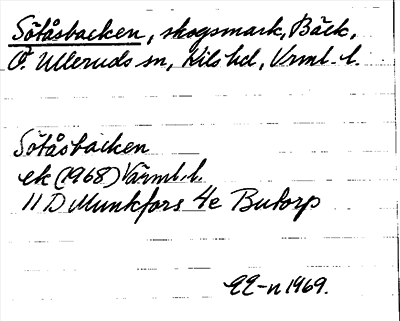 Sötåsbacken, skogsmark, Bäck,
Ö. Ulleruds sn, Kils hd, Vrml. l.
Sötåsbacken
ek (1968) Värml. l.
11 D Munkfors 4e Butorp
1969.